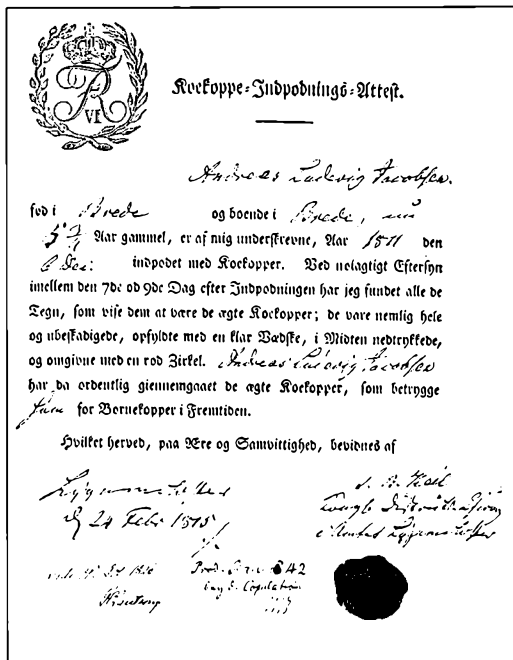 FR
VI
Koekoppe=Indpodnings=Attest.
Andreas Ludevig Jacobsen.
fød i Brede og boende i Brede, nu
5 3/4 Aar gammel, er af mig underskrevne, Aar 1811 den
6 Dec: indpodet med Koekopper. Ved nøiagtigt Eftersyn
imellem den 7de og 9de Dag efter Indpodningen har jeg fundet alle de
Tegn, som vise dem at være de ægte Koekopper; de vare nemlig hele
og ubeskadigede, opfyldte med en klar Vædske, i Midten nedtrykkede,
og omgivne med en rød Zirkel. Andreas Ludevig Jacobsen
har da ordentlig giennemgaaet de ægte Koekopper, som betrygge
ham for Børnekopper i Fremtiden.
Hvilket herved, paa Ære og Samvittighed, bevidnes af
d 24 Febr 1815
642
Copulation